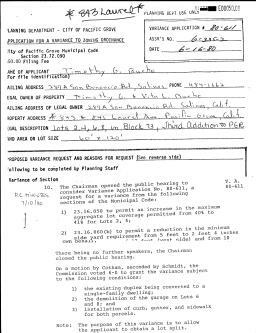 *843 Laurel*
PLANNING DEPT USE ONLY
PLANNING DEPARTMENT - CITY OF PACIFIC GROVE
APPLICATION FOR A VARIANCE TO ZONING ORDINANCE
City of Pacific Grove Municipal Code
Section 23.72.090
Filing Fee
VARIANCE APPLICATION # 80-611
DATE 6-16-80
NAME OF APPLICANT Timothy G.
(for file identification)
MAILING ADDRESS 347A San Benancio Rd, Salinas PHONE
LEGAL OWNER OF PROPERTY Timothy G. &
MAILING ADDRESS OF LEGAL OWNER 347A San Benancio Rd. Salinas, Calif.
PROPERTY ADDRESS 843 & 845 Laurel Ave Pacific Grove, Calif.
LEGAL DESCRIPTION Lots 2, 4, 6, 8, in Block 73, Third Addition to PGR
AND AREA OR LOT SIZE 60' x 120'
PROPOSED VARIANCE AND REASONS FOR REQUEST (See reverse side)
Following to be completed by Planning Staff
Variance of Section
PC Minutes
7/10/80
10. The Chairman opened the public hearing to
consider Variance Application No. 80-611, a
request for a variance from the following
sections of the Municipal Code:
V. A.
80-611
1) 23.16.050 to permit an increase in the maximum
aggregate lot coverage permitted from 40% to
41% for Lots 2, 4;
2) 23.16.060(b) to permit a reduction in the minimum
side yard requirement from 5 feet to 2 feet 4 inches
There being no further speakers, the Chairman
closed the public hearing.
On a motion by Cothan, seconded by Schmidt, the
Commission voted 4-0 to grant the variance subject
to the following conditions:
1) the existing duplex being converted to a
single-family dwelling;
2) the demolition of the garage on Lots 6
and 8; and
3) installation of curb, gutter, and sidewalk
for both parcels.
Note: The purpose of this variance is to allow
the applicant to obtain a lot split.